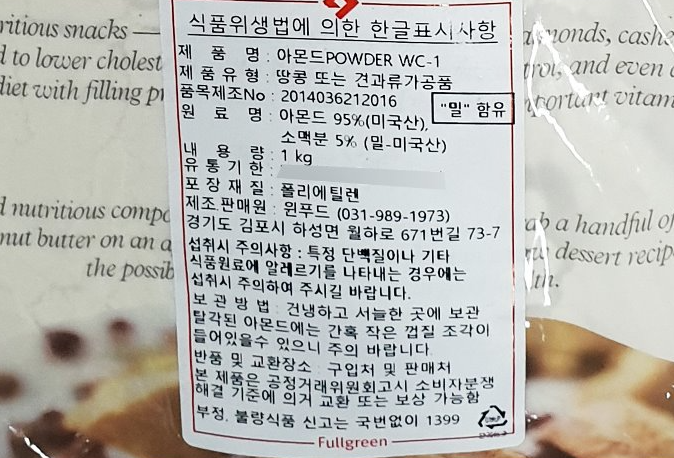 식품위생법에 의한 한글표시사항
제 품 명 : 아몬드POWDER WC-1
제 품 유 형 : 땅콩 또는 견과류가공품
품목제조No : 2014036212016
"밀" 함유
원 료 명 : 아몬드 95%(미국산),
소맥분 5% (밀-미국산)
내 용 량 : 1 kg
유 통 기 한 :
포 장 재 질 : 폴리에틸렌
제조.판매원 : 윈푸드 (031-989-1973)
경기도 김포시 하성면 월하로 671번길 73-7
섭취시 주의사항 : 특정 단백질이나 기타
식품원료에 알레르기를 나타내는 경우에는
섭취시 주의하여 주시길 바랍니다.
보 관 방 법 : 건냉하고 서늘한 곳에 보관
탈각된 아몬드에는 간혹 작은 껍질 조각이
들어있을수 있으니 주의 바랍니다.
반품 및 교환장소 : 구입처 및 판매처
본 제품은 공정거래위원회고시 소비자분쟁
해결 기준에 의거 교환 또는 보상 가능함
부정, 불량식품 신고는 국번없이 1399
Fullgreen
ritious snacks —
to lower cholest
diet with filling pr
d nutritious compo
nut butter on an a
the possib
almonds, cashe
trol, and even
important vitam
a handful of
dessert recip